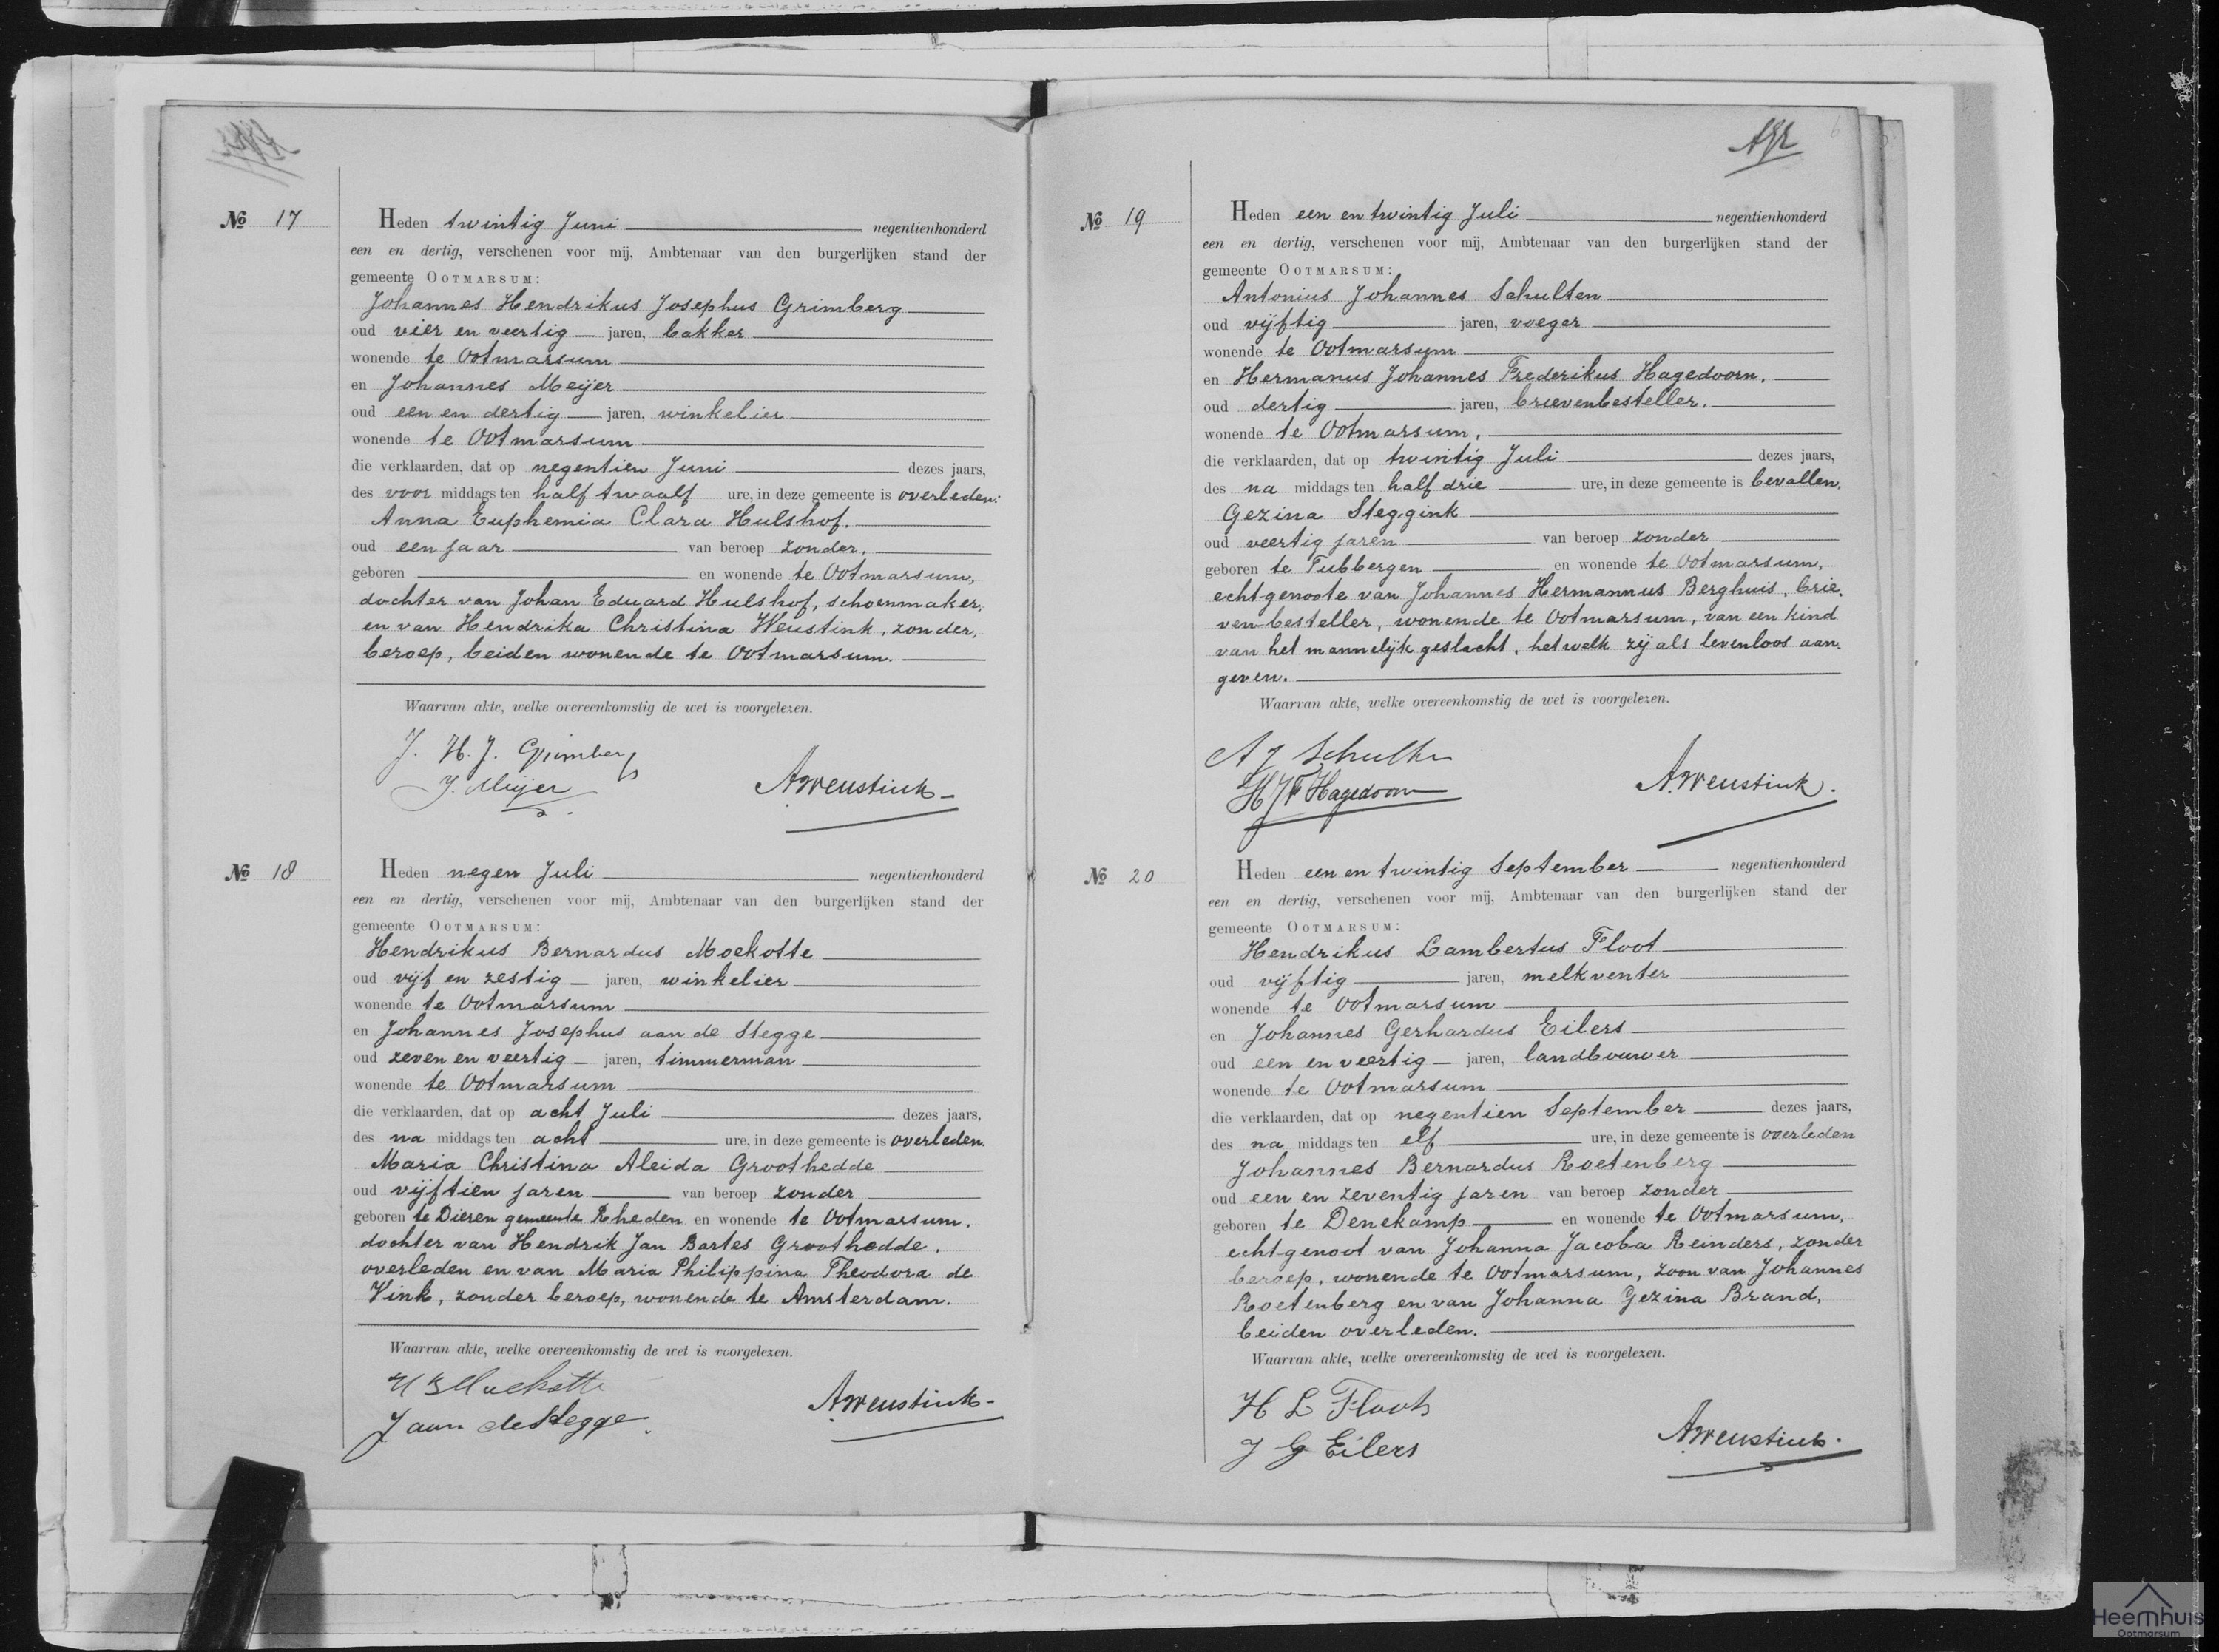 № 17
Heden twintig Juni negentienhonderd
een en dertig, verschenen voor mij, Ambtenaar van den burgerlijken stand der
gemeente OOTMARSUM:
Johannes Hendrikus Josephus Grimberg
oud vier en veertig jaren, bakker
wonende te Ootmarsum
en Johannes Meijer
oud een en dertig jaren, winkelier
wonende te Ootmarsum
die verklaarden, dat op negentien Juni dezes jaars,
des voor middags ten half twaalf ure, in deze gemeente is overleden:
Anna Euphemia Clara Hulshof.
oud een jaar van beroep zonder,
geboren en wonende te Ootmarsum,
dochter van Johan Eduard Hulshof, schoenmaker,
en van Hendrika Christina Weustink, zonder,
beroep, beiden wonende te Ootmarsum.
Waarvan akte, welke overeenkomstig de wet is voorgelezen.
J. H. J. Grimberg
J. Meijer
A. Weustink
№ 18
Heden negen Juli negentienhonderd
een en dertig, verschenen voor mij, Ambtenaar van den burgerlijken stand der
gemeente OOTMARSUM:
Hendrikus Bernardus Moekotte
oud vijf en zestig jaren, winkelier
wonende te Ootmarsum
en Johannes Josephus aan de Stegge
oud zeven en veertig jaren, timmerman
wonende te Ootmarsum
die verklaarden, dat op acht Juli dezes jaars,
des na middags ten acht ure, in deze gemeente is overleden.
Maria Christina Aleida Groothedde
oud vijftien jaren van beroep zonder
geboren te Dieren gemeente Rheden en wonende te Ootmarsum.
dochter van Hendrik Jan Bartes Groothedde,
overleden en van Maria Philippina Theodora de
Vink, zonder beroep, wonende te Amsterdam.
Waarvan akte, welke overeenkomstig de wet is voorgelezen.
H B Moekotte
J aan de Stegge.
A. Weustink
№ 19
Heden een en twintig Juli negentienhonderd
een en dertig, verschenen voor mij, Ambtenaar van den burgerlijken stand der
gemeente OOTMARSUM:
Antonius Johannes Schulten
oud vijftig jaren, voeger
wonende te Ootmarsum
en Hermanus Johannes Frederikus Hagedoorn.
oud dertig jaren, brievenbesteller.
wonende te Ootmarsum,
die verklaarden, dat op twintig Juli dezes jaars,
des na middags ten half drie ure, in deze gemeente is bevallen,
Gezina Steggink
oud veertig jaren van beroep zonder
geboren te Tubbergen en wonende te Ootmarsum,
echtgenoote van Johannes Hermannus Berghuis, brie.
venbesteller, wonende te Ootmarsum, van een kind
van het mannelijk geslacht, hetwelk zij als levenloos aan.
geven.
Waarvan akte, welke overeenkomstig de wet is voorgelezen.
A J Schulten
H J F Hagedoorn
A. Weustink.
№ 20
Heden een en twintig September negentienhonderd
een en dertig, verschenen voor mij, Ambtenaar van den burgerlijken stand der
gemeente OOTMARSUM:
Hendrikus Lambertus Floot
oud vijftig jaren, melkventer
wonende te Ootmarsum
en Johannes Gerhardus Eilers
oud een en veertig jaren, landbouwer
wonende te Ootmarsum
die verklaarden, dat op negentien September dezes jaars,
des na middags ten elf ure, in deze gemeente is overleden
Johannes Bernardus Roetenberg
oud een en zeventig jaren van beroep zonder
geboren te Denekamp en wonende te Ootmarsum,
echtgenoot van Johanna Jacoba Reinders, zonder
beroep, wonende te Ootmarsum, zoon van Johannes
Roetenberg en van Johanna Gezina Brand,
beiden overleden.
Waarvan akte, welke overeenkomstig de wet is voorgelezen.
H L Floot
J G Eilers
A. Weustink.
Heemhuis
Ootmarsum